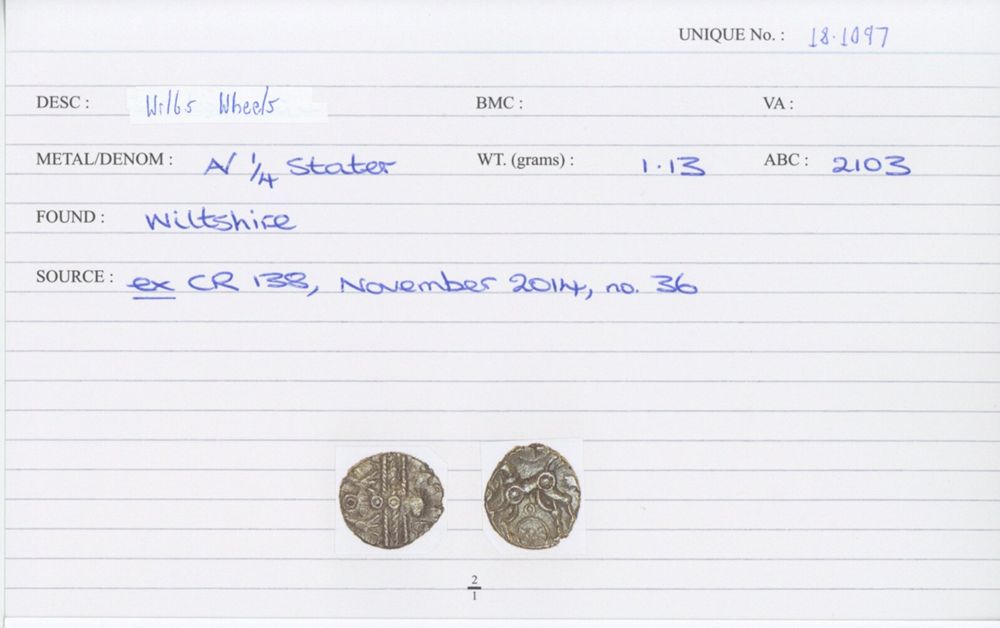 UNIQUE No. : 18.1097
DESC : Wilts Wheels BMC : VA :
METAL/DENOM : A/ 1/4 Stater WT. (grams) : 1.13 ABC : 2103
FOUND : Wiltshire
SOURCE : ex CR 138, November 2014, no. 36
2
1